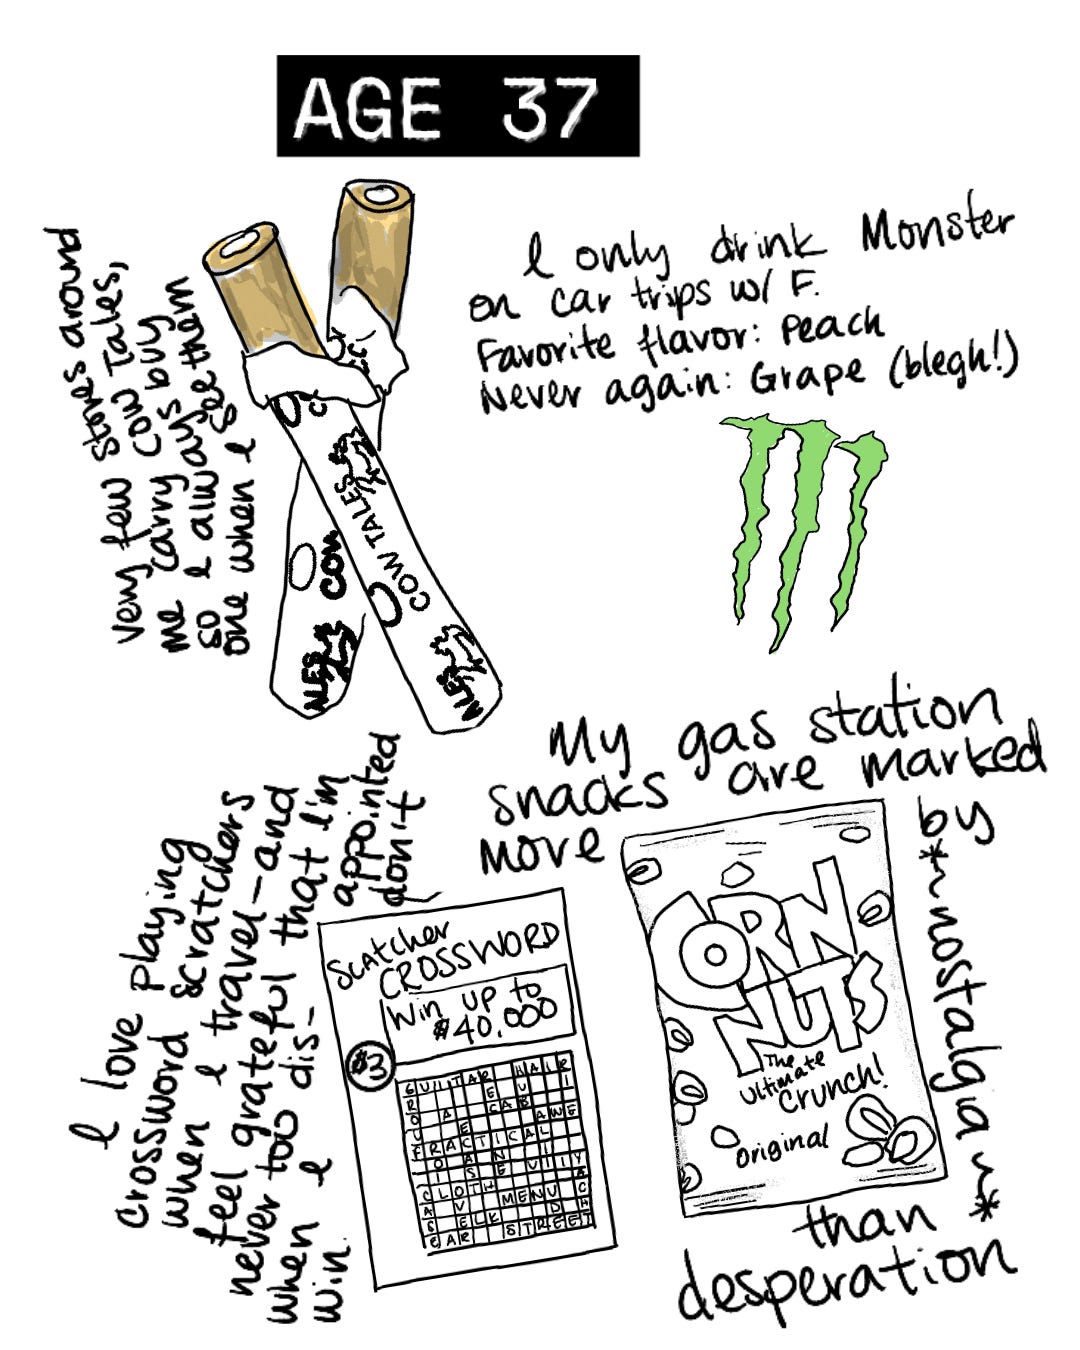 AGE 37
Very few stores around
me carry Cow Tales,
so I always buy
one when I see them
COW TALES
ALES
COW
ALES
I only drink Monster
on car trips w/ F.
Favorite flavor: Peach
Never again: Grape (blegh!)
My gas station
snacks are marked
more
by
*~nostalgia~*
than
desperation
I love playing
crossword scratchers
when I travel—and
feel grateful that I'm
never too dis-appointed
when I don't
win.
Scatcher
CROSSWORD
Win up to
$40,000
$3
GUITAR HAIR
CAB
AWE
PRACTICAL
CLOTH
MENU
ELK
EAR STREET
CORN
NUTS
The
ultimate
Crunch!
original